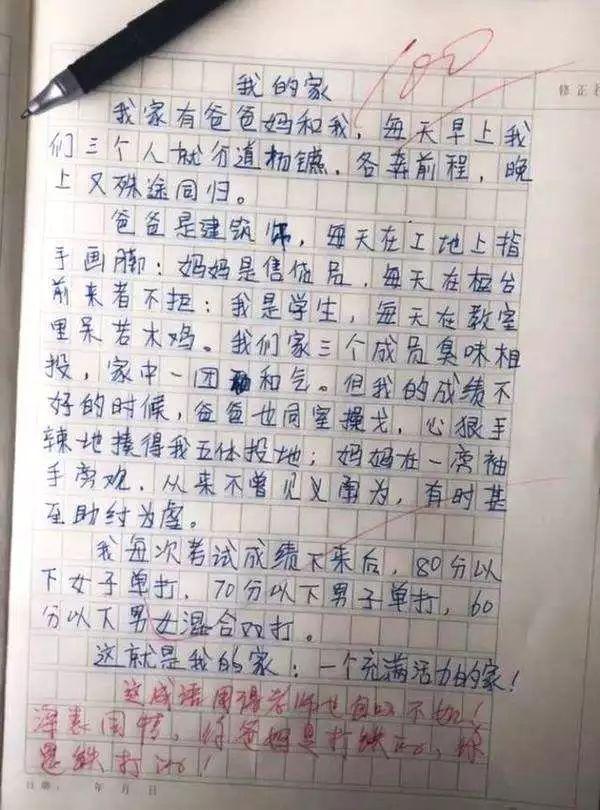 100
我的家
修正
我家有爸爸妈和我，每天早上我
们三个人就分道杨镳，各奔前程，晚
上又殊途同归。
爸爸是建筑师，每天在工地上指
手画脚；妈妈是售货员，每天在柜台
前来者不拒；我是学生，每天在教室
里呆若木鸡。我们家三个成员臭味相
投，家中一团和气。但我的成绩不
好的时候，爸爸也同室操戈，心狠手
辣地揍得我五体投地；妈妈在一旁袖
手旁观，从来不曾见义勇为，有时甚
至助纣为虐。
我每次考试成绩下来后，80分以
下女子单打，70分以下男子单打，60
分以下男女混合双打。
这就是我的家：一个充满活力的家！
这成语用得老师也自叹不如！
深表同情，你爸妈是打铁的，你
是铁打的！
日期： 年 月 日